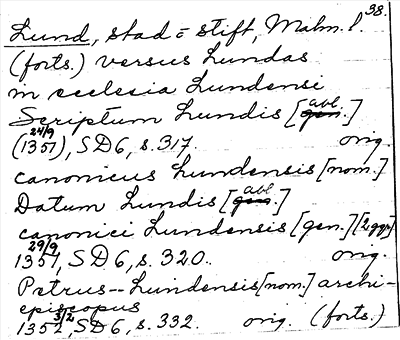 Lund, stad o stift, Malm. l. 38.
(forts.) versus Lundas
in ecclesia Lundensi
Scriptum Lundis [gen. abl.]
(1351) 24/9, SD6, s. 317. orig.
canonicus Lundensis [nom.]
Datum Lundis [gen. abl.]
canonici Lundensis [gen.] [2 ggr]
1351 29/9, SD6, s. 320. orig.
Petrus -- Lundensis [nom.] archi-
episcopus
1352 3/2, SD6, s. 332. orig. (forts.)